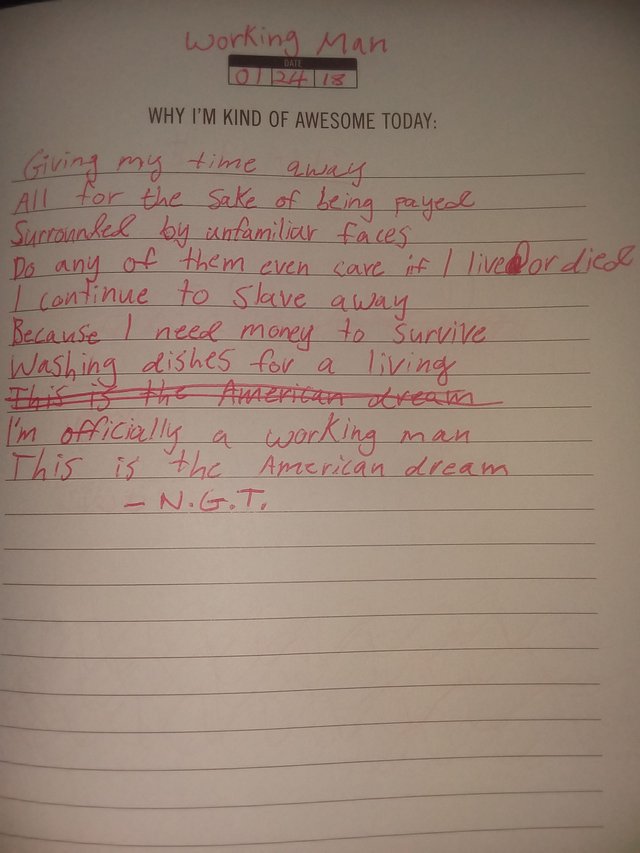 Working Man
DATE
01 24 18
WHY I'M KIND OF AWESOME TODAY:
Giving my time away
All for the sake of being payed
Surrounded by unfamiliar faces
Do any of them even care if I lived or died
I continue to slave away
Because I need money to survive
Washing dishes for a living
This is the American dream
I'm officially a working man
This is the American dream
- N.G.T.